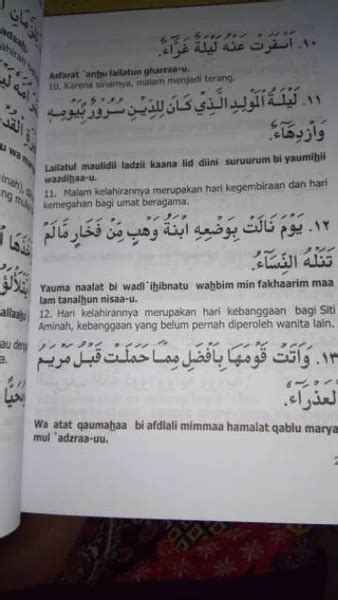 ١٠. اَسْفَرَتْ عَنْهُ لَيْلَةٌ غَرَّاءُ.
Asfarat `anhu lailatun gharraa-u.
10. Karena sinarnya, malam menjadi terang.
١١. لَيْلَةُ الْمَوْلِدِ الَّذِيْ كَانَ لِلدِّيْنِ سُرُوْرٌ بِيَوْمِهِ
وَازْدِهَاءُ.
Lailatul maulidil ladzii kaana lid diini suruurum bi yaumihii
wazdihaa-u.
11. Malam kelahirannya merupakan hari kegembiraan dan hari
kemegahan bagi umat beragama.
١٢. يَوْمَ نَالَتْ بِوَضْعِهِ ابْنَةُ وَهْبٍ مِنْ فَخَارٍ مَالَمْ
تَنَلْهُ النِّسَاءُ.
Yauma naalat bi wadl`ihibnatu wahbim min fakhaarim maa
lam tanalhun nisaa-u.
12. Hari kelahirannya merupakan hari kebanggaan bagi Siti
Aminah, kebanggaan yang belum pernah diperoleh wanita lain.
١٣. وَاَتَتْ قَوْمَهَا بِاَفْضَلَ مِمَّا حَمَلَتْ قَبْلُ مَرْيَمُ
الْعَذْرَاءُ.
Wa atat qaumahaa bi afdlali mimmaa hamalat qablu marya
mul `adzraa-uu.